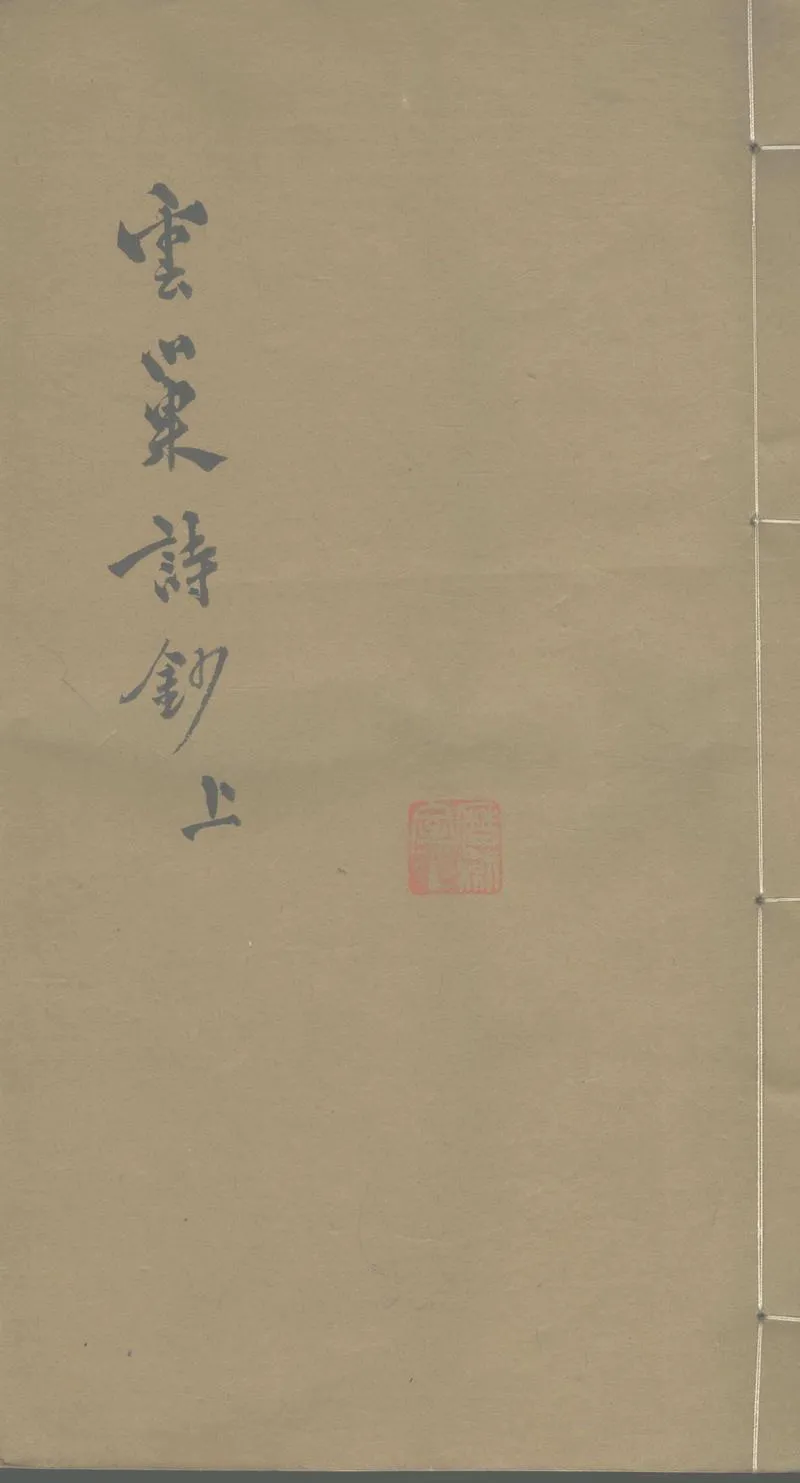 雲巢詩鈔 上